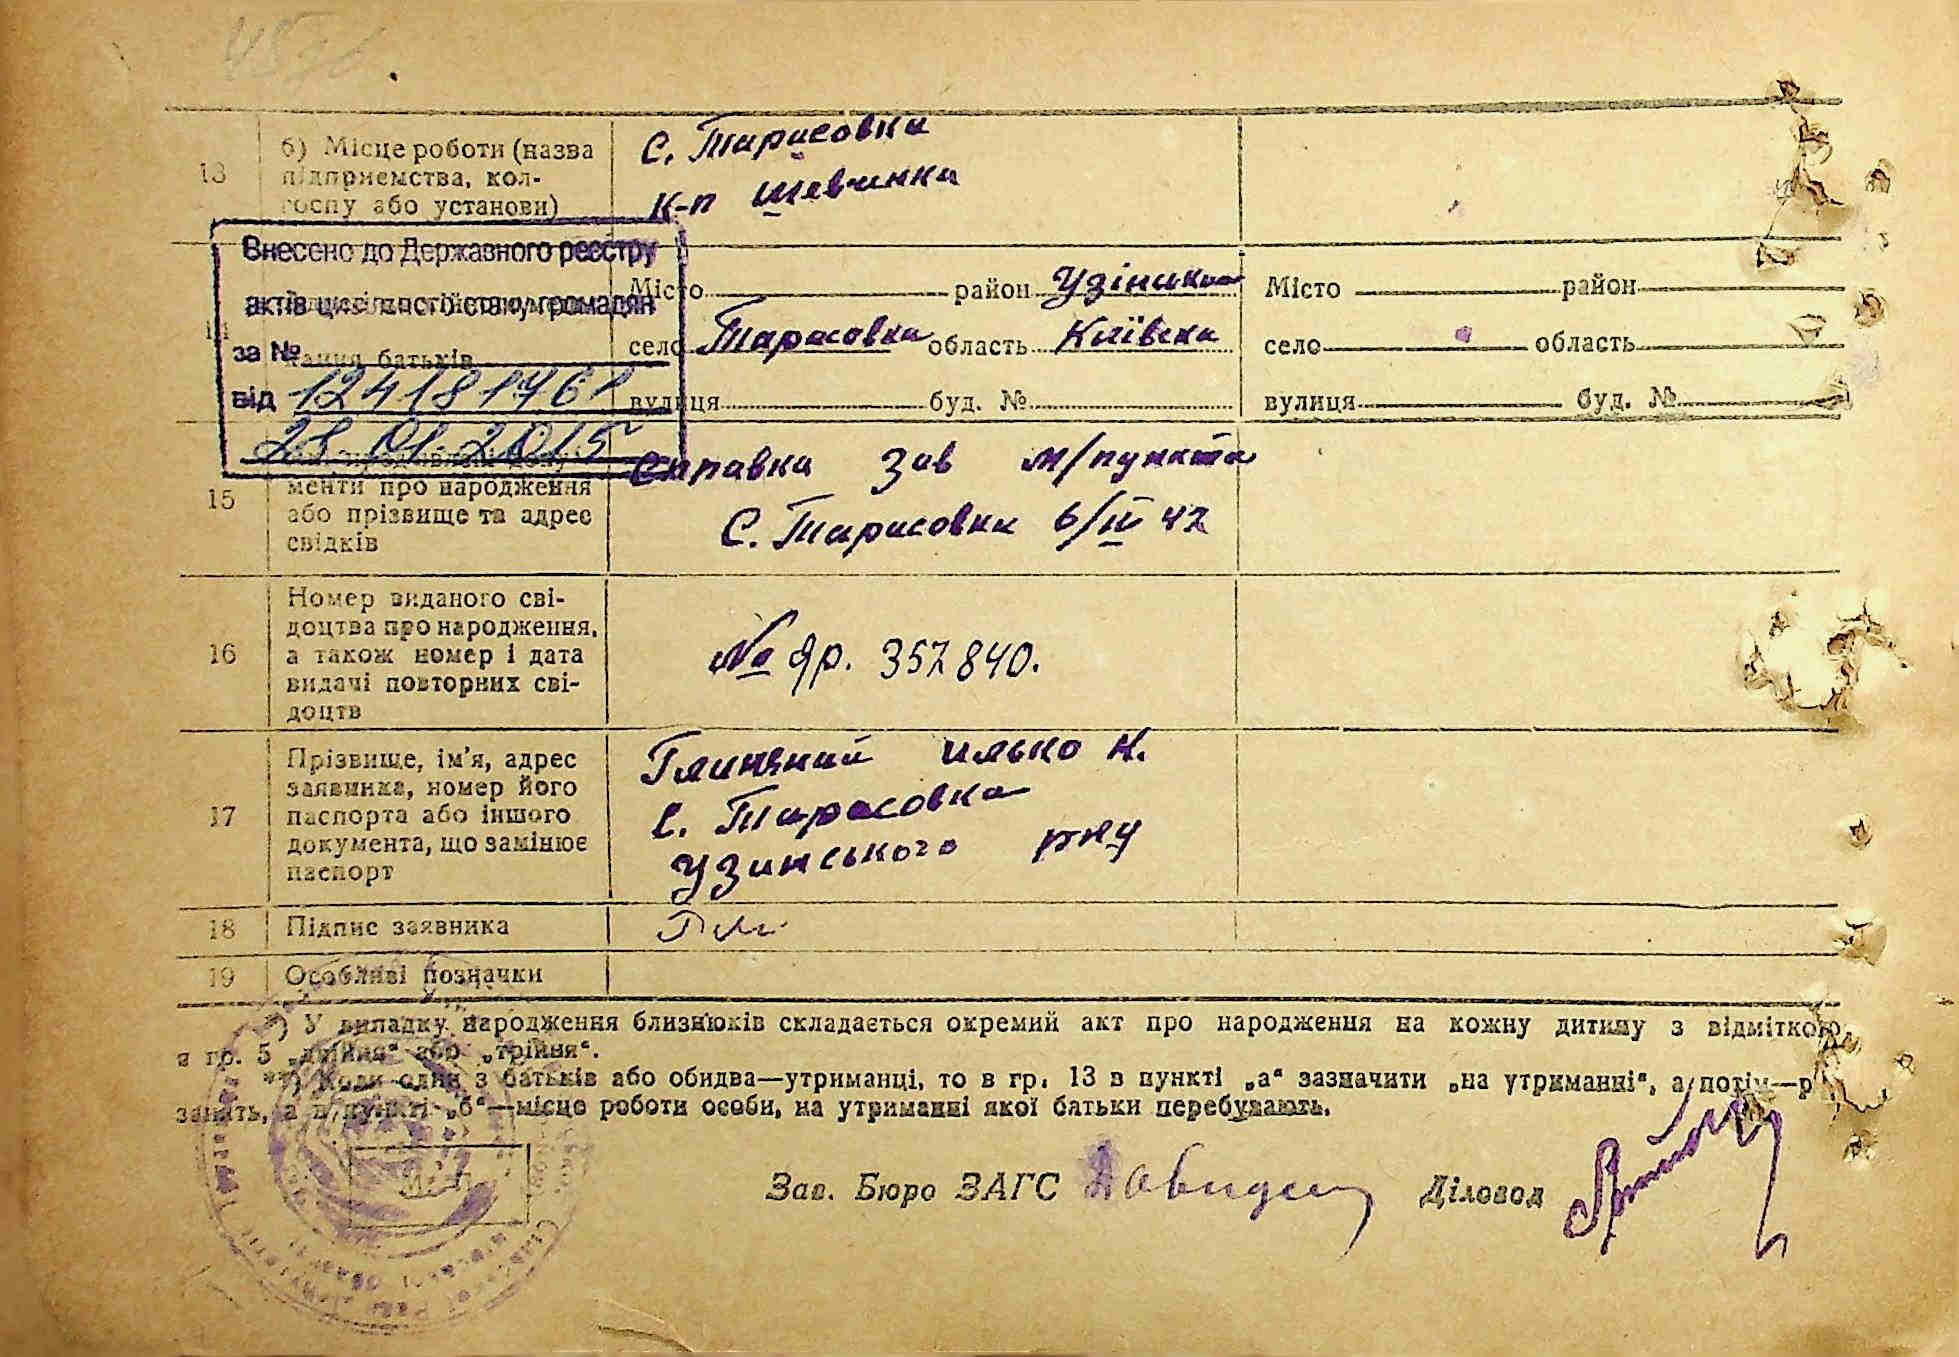 4576
13 б) Місце роботи (назва підприємства, колгоспу або установи)
с. Тарасовка
к-п Шевченка
Внесено до Державного реєстру
актів цивільного стану громадян
за №
від 124181761
28.01.2015
14
тання батьків
Місто район Узінський
село Тарасовка область Київська
вулиця буд. №
Місто район
село область
вулиця буд. №
15
менти про народження
або прізвище та адрес
свідків
Справка Зав м/пункта
С. Тарасовка 6/ІІІ 47
16
Номер виданого сві-
доцтва про народження,
а також номер і дата
видачі повторних сві-
доцтв
№ 357840.
17
Прізвище, ім'я, адрес
заявника, номер його
паспорта або іншого
документа, що замінює
паспорт
Глиняний Илько Н.
с. Тарасовка
Узинського р-ну
18 Підпис заявника
Гли
19 Особливі позначки
*) У випадку народження близнюків складається окремий акт про народження на кожну дитину з відміткою
в гр. 5 „двійня“ або „трійня“.
**) Коли один з батьків або обидва—утриманці, то в гр. 13 в пункті „а“ зазначити „на утриманні“, а потім—р
занять, а в пункті „б“—місце роботи особи, на утриманні якої батьки перебувають.
Зав. Бюро ЗАГС
Діловод